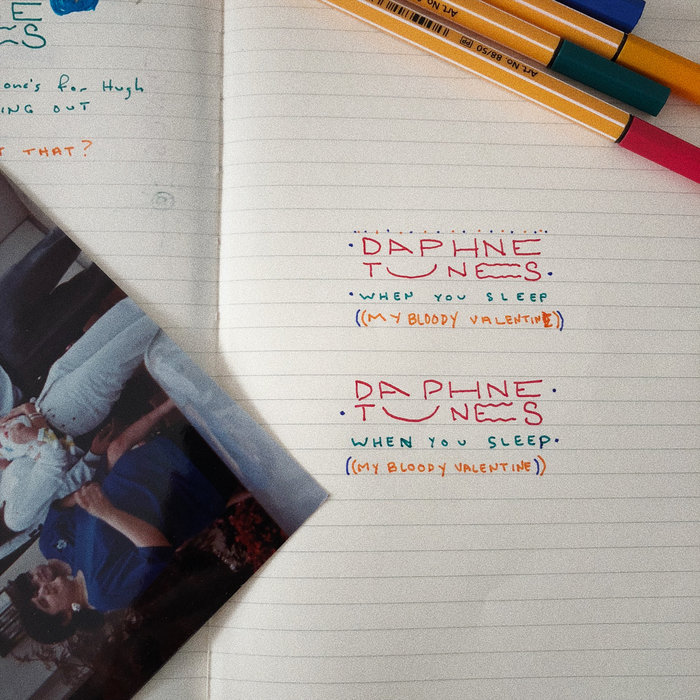 ES
one's for Hugh
ING OUT
T THAT?
Art. No
Art. No 88/50
DAPHNE
TUNES
WHEN YOU SLEEP
((MY BLOODY VALENTINE))
DAPHNE
TUNES
WHEN YOU SLEEP
((MY BLOODY VALENTINE))